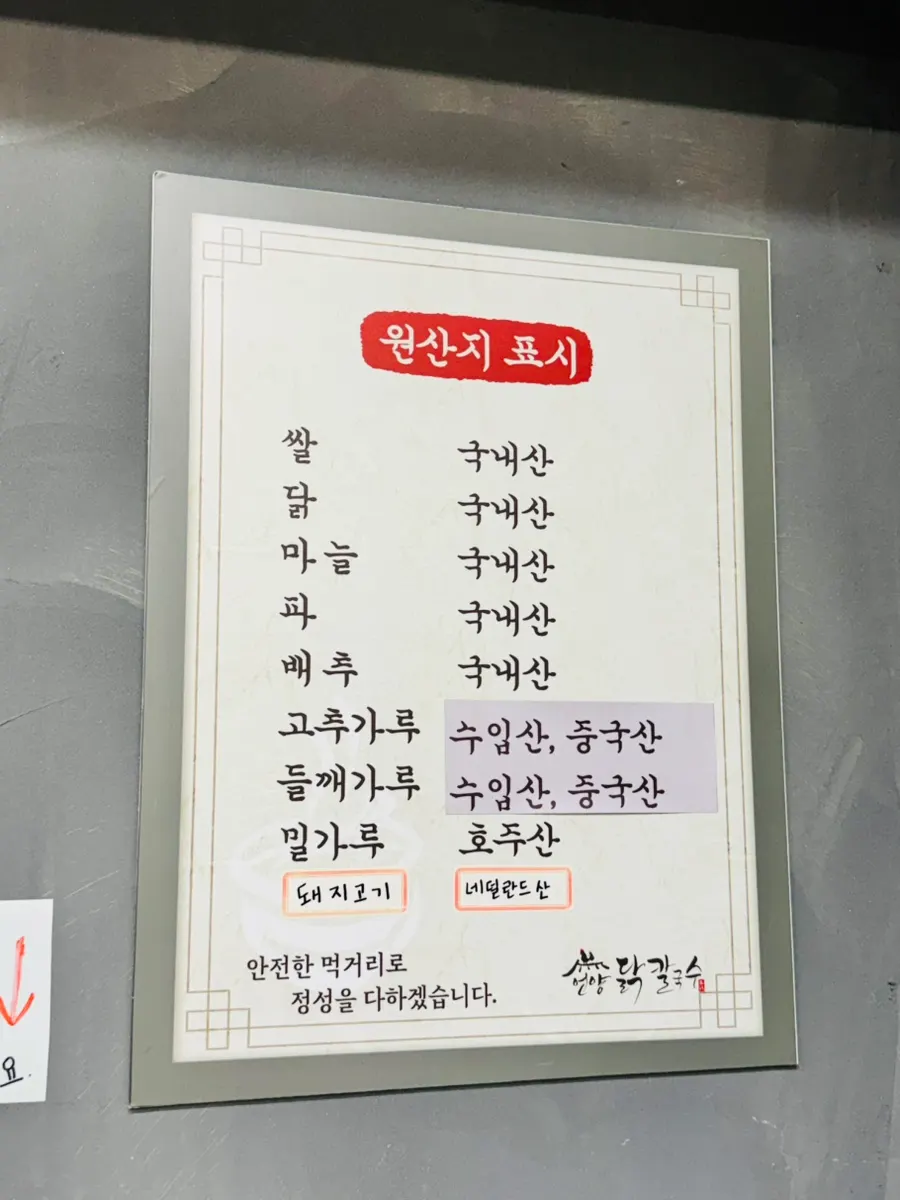 원산지 표시
쌀 국내산
닭 국내산
마늘 국내산
파 국내산
배추 국내산
고추가루 수입산, 중국산
들깨가루 수입산, 중국산
밀가루 호주산
돼지고기 네덜란드산
안전한 먹거리로
정성을 다하겠습니다.
언양 닭칼국수
요.